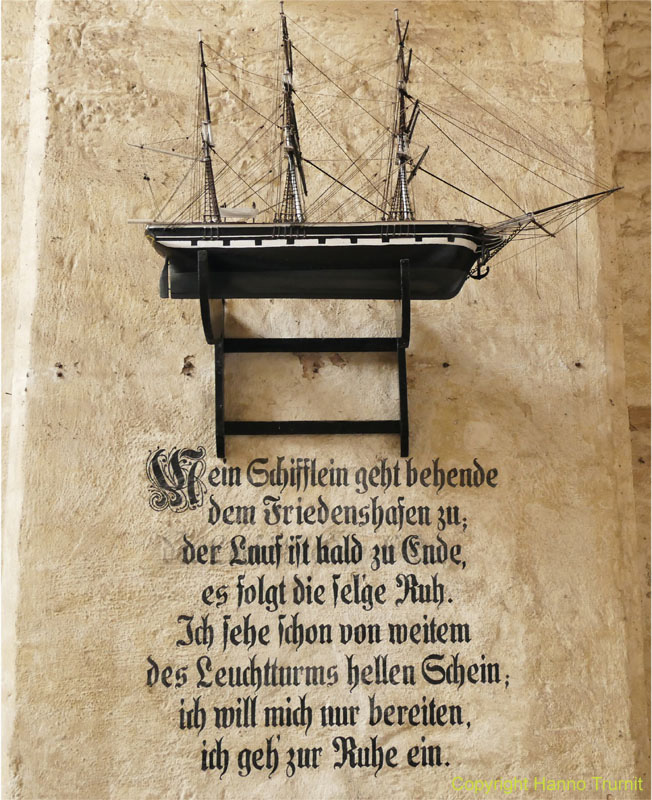 Mein Schifflein geht behende
dem Friedenshafen zu;
der Lauf ist bald zu Ende,
es folgt die sel'ge Ruh.
Ich sehe schon von weitem
des Leuchtturms hellen Schein;
ich will mich nur bereiten,
ich geh' zur Ruhe ein.
Copyright Hanno Trumit